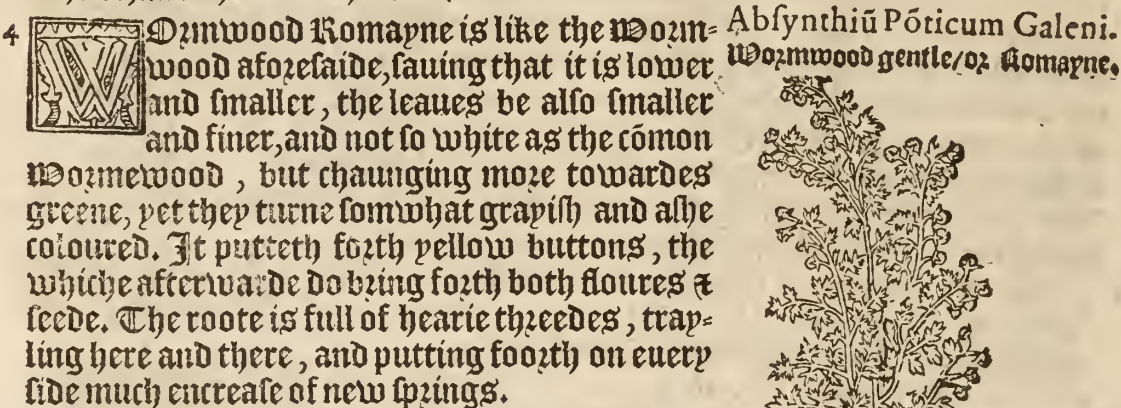 4 WOrmwood Romayne is like the Worm=
wood aforesaide, sauing that it is lower
and smaller, the leaues be also smaller
and finer, and not so white as the cōmon
Wormewood, but chaunging more towardes
greene, yet they turne somwhat grayish and ashe
coloured. It putteth forth yellow buttons, the
whiche afterwarde do bring forth both floures &
seede. The roote is full of hearie threedes, tray=
ling here and there, and putting foorth on euery
side much encrease of new springs.
Absynthiū Pōticum Galeni.
Wormwood gentle/or Romayne.